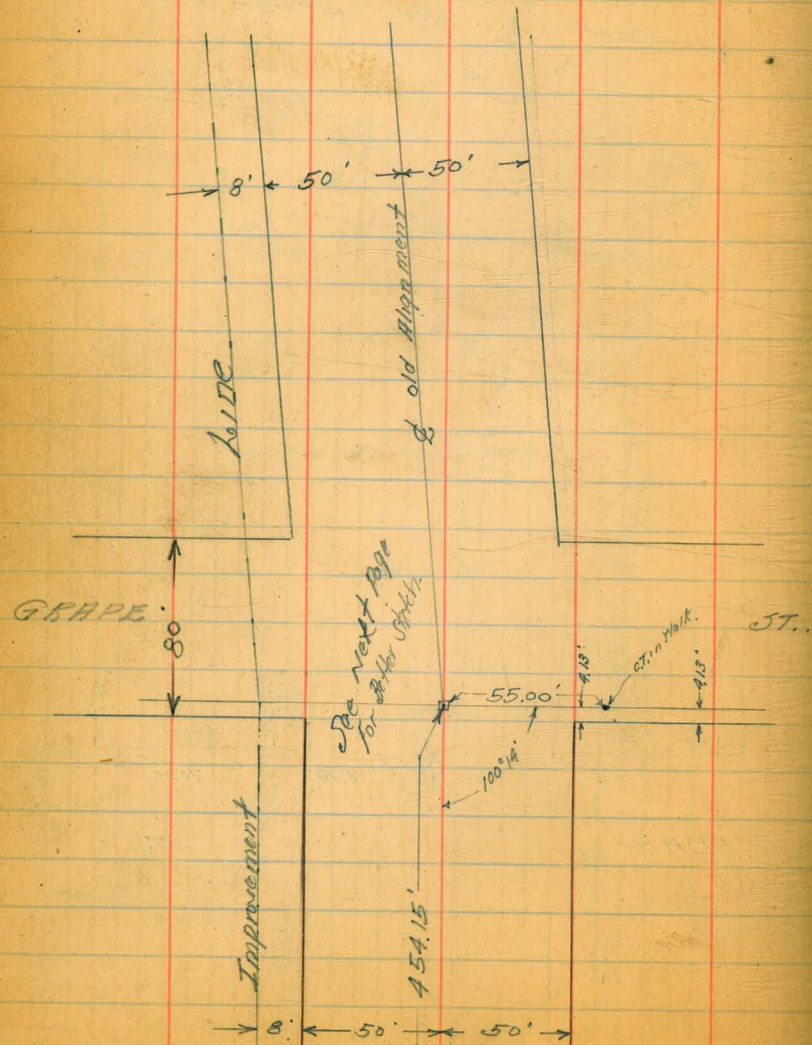 8' 50' 50'
℄ old Alignment
Line
GRAPE ST.
80'
See Next Page
For Better Sketch.
55.00'
4.13'
C.T. in Walk.
4.13'
100°14'
Improvement
454.15'
8' 50' 50'